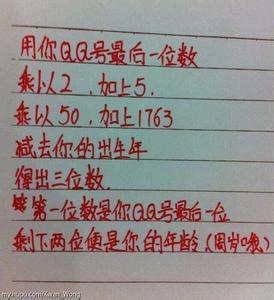 用你QQ号最后一位数
乘以2，加上5.
乘以50，加上1763
减去你的出生年
得出三位数.
第一位数是你QQ号最后一位
剩下两位便是你的年龄(周岁哦)